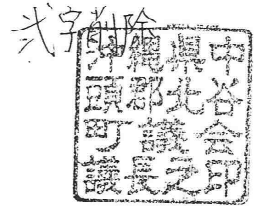 弐字削除
沖縄県中
頭郡北谷
町議会
議長之印